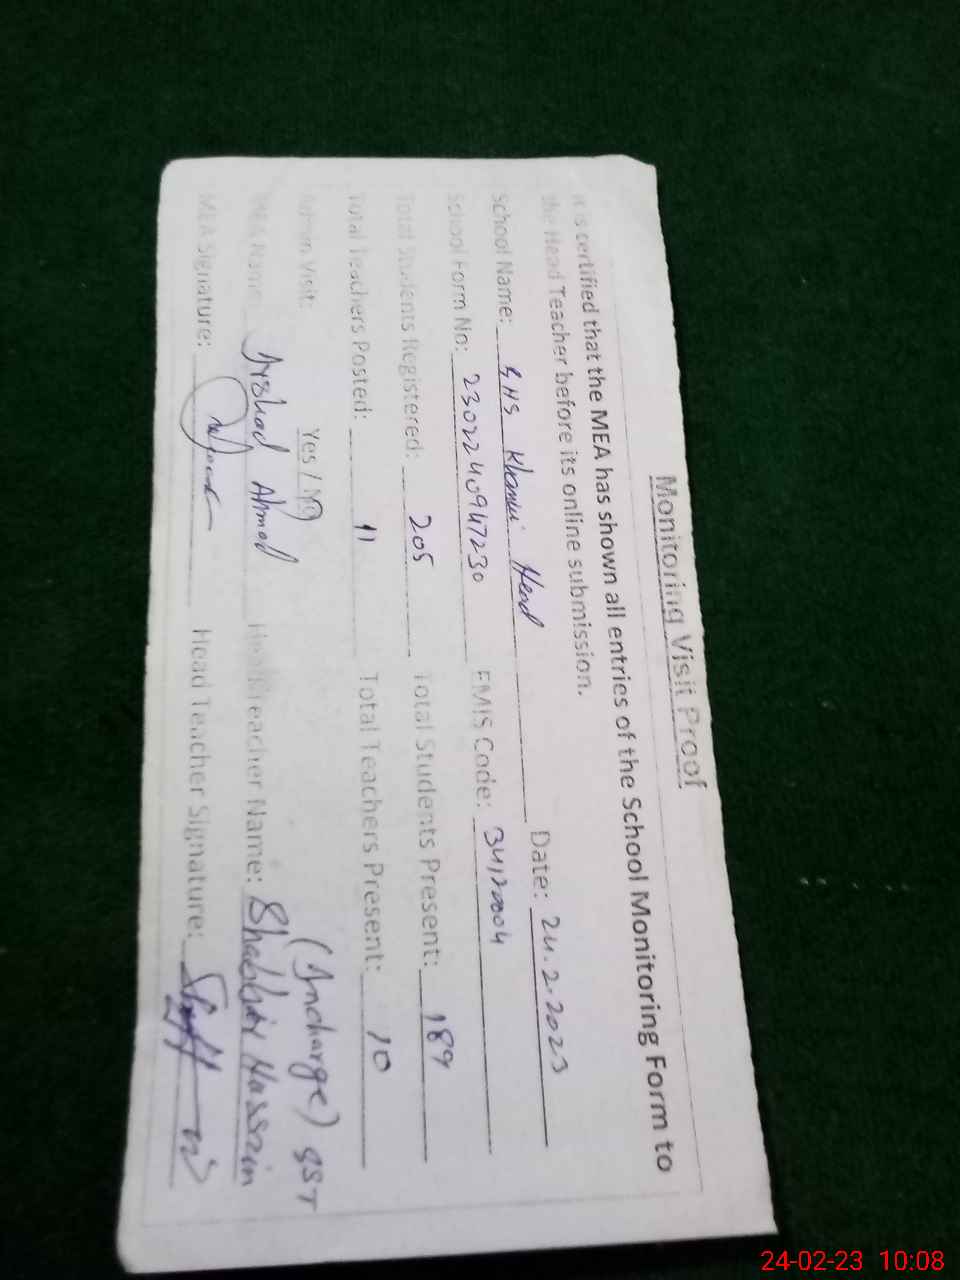 Monitoring Visit Proof
It is certified that the MEA has shown all entries of the School Monitoring Form to
the Head Teacher before its online submission.
School Name: GHS Khanki Head Date: 24.2.2023
School Form No: 2302240947230 EMIS Code: 34120004
Total Students Registered: 205 Total Students Present: 189
Total Teachers Posted: 11 Total Teachers Present: 10
Admin Visit: Yes / No (Incharge) SST
MEA Name: Arshad Ahmed Head Teacher Name: Shabbir Hussain
MEA Signature: Head Teacher Signature:
24-02-23 10:08